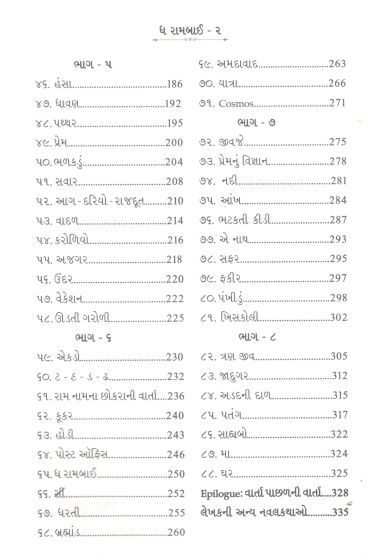 ધ રામબાઈ - ૨
ભાગ - ૫
૪૬. હંસા...............................186
૪૭. ધાવણ...........................192
૪૮. પથ્થર...........................195
૪૯. પ્રેમ...............................200
૫૦. ભળકડું..........................204
૫૧. સવાર............................208
૫૨. આગ - દરિયો - રાજદૂત........210
૫૩. વાદળ............................214
૫૪. કરોળિયો.......................216
૫૫. અજગર.........................218
૫૬. ઉંદર..............................220
૫૭. વેકેશન..........................222
૫૮. ઊડતી ગરોળી.................225
ભાગ - ૬
૫૯. એકડો...........................230
૬૦. ટ - ઠ - ડ - ઢ....................232
૬૧. રામ નામના છોકરાની વાર્તા....236
૬૨. કૂકર..............................240
૬૩. હોડી.............................243
૬૪. પોસ્ટ ઑફિસ..................246
૬૫. ધ રામબાઈ.....................250
૬૬. સીં................................252
૬૭. ધરતી...........................255
૬૮. બ્રહ્માંડ.........................260
૬૯. અમદાવાદ.......................263
૭૦. યાત્રા............................266
૭૧. Cosmos..........................271
ભાગ - ૭
૭૨. જીવજે..........................275
૭૩. પ્રેમનું વિજ્ઞાન..................278
૭૪. નદી.............................281
૭૫. આંખ............................284
૭૬. ભટકતી કીડી..................287
૭૭. એ નાથ.........................293
૭૮. સફર.............................295
૭૯. ફકીર............................297
૮૦. પંખીડું..........................298
૮૧. ખિસકોલી......................302
ભાગ - ૮
૮૨. ત્રણ જીવ.......................305
૮૩. જાદુગર.........................312
૮૪. અડદની દાળ...................315
૮૫. પતંગ...........................317
૮૬. સાહ્યબો........................322
૮૭. મા...............................324
૮૮. ઘર..............................325
Epilogue: વાર્તા પાછળની વાર્તા....328
લેખકની અન્ય નવલકથાઓ.........335